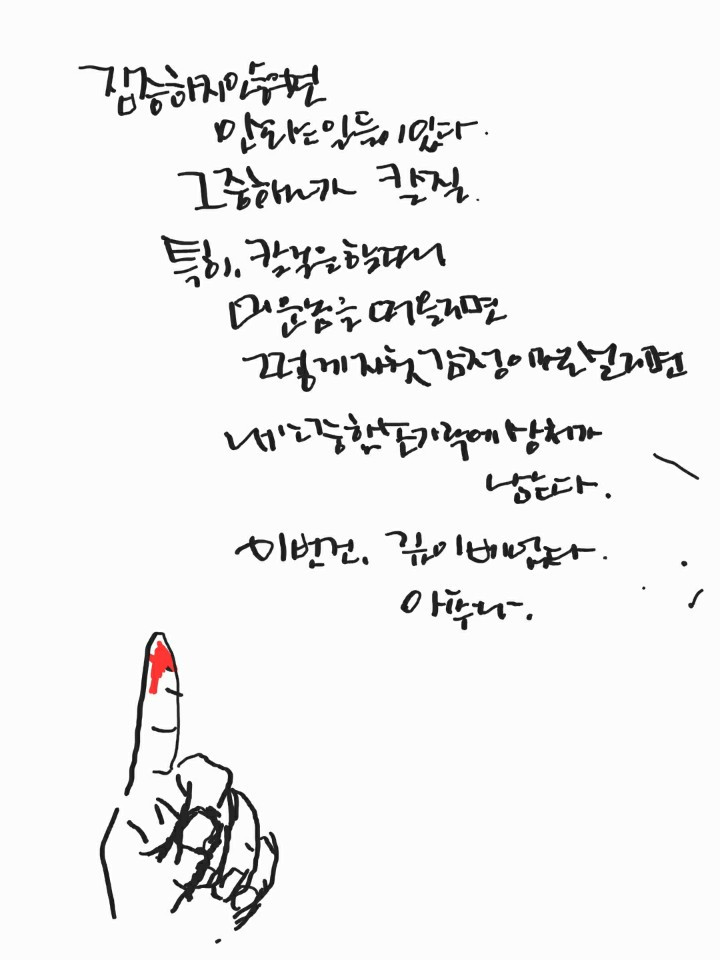 집중하지 않으면
안 되는 일들이 있다.
그중 하나가 칼질.
특히, 칼질을 할 때
미운 놈을 떠올리면
그렇게 자칫 감정이 실리면
내 소중한 손가락에 상처가
남는다.
이번건, 깊이 베였다.
아푸다.